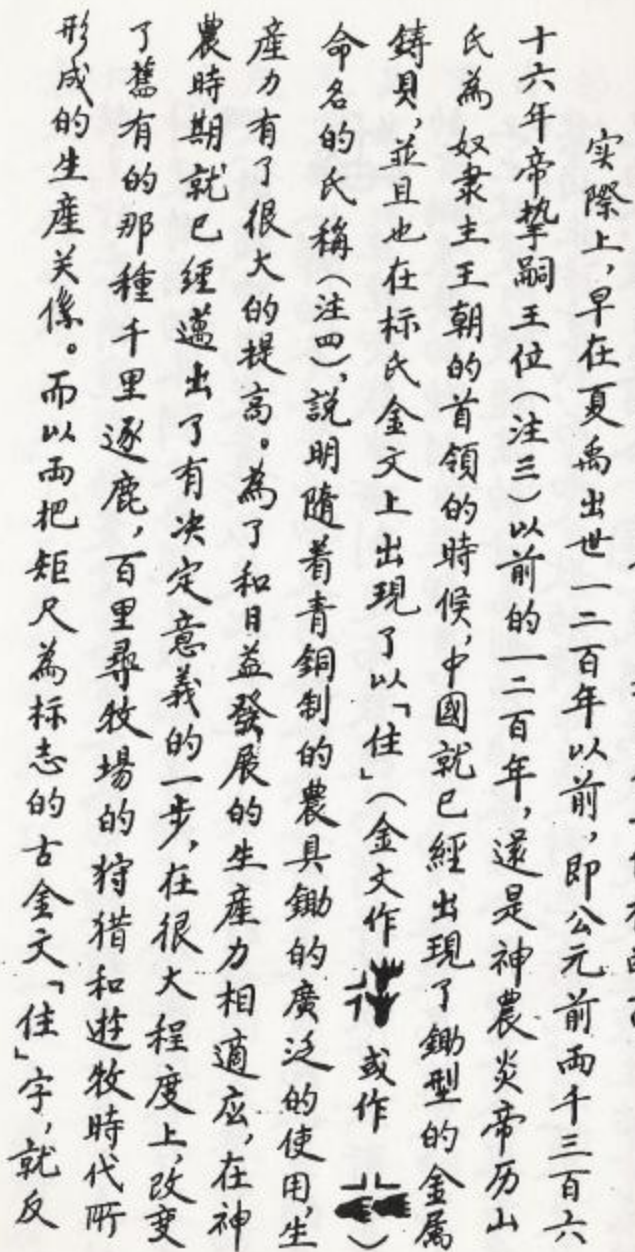 实際上，早在夏禹出世一二百年以前，即公元前两千三百六
十六年帝挚嗣王位（注三）以前的一二百年，還是神農炎帝历山
氏為奴隶主王朝的首領的時候，中國就已經出現了鋤型的金属
鋳貝，並且也在标氏金文上出現了以「住」（金文作 或作 ）
命名的氏稱（注四），說明隨着青銅制的農具鋤的廣泛的使用，生
產力有了很大的提高。為了和日益發展的生產力相適应，在神
農時期就已經邁出了有决定意義的一步，在很大程度上，改变
了舊有的那種千里逐鹿，百里尋牧場的狩猎和遊牧時代所
形成的生產关係。而以两把矩尺為标志的古金文「住」字，就反